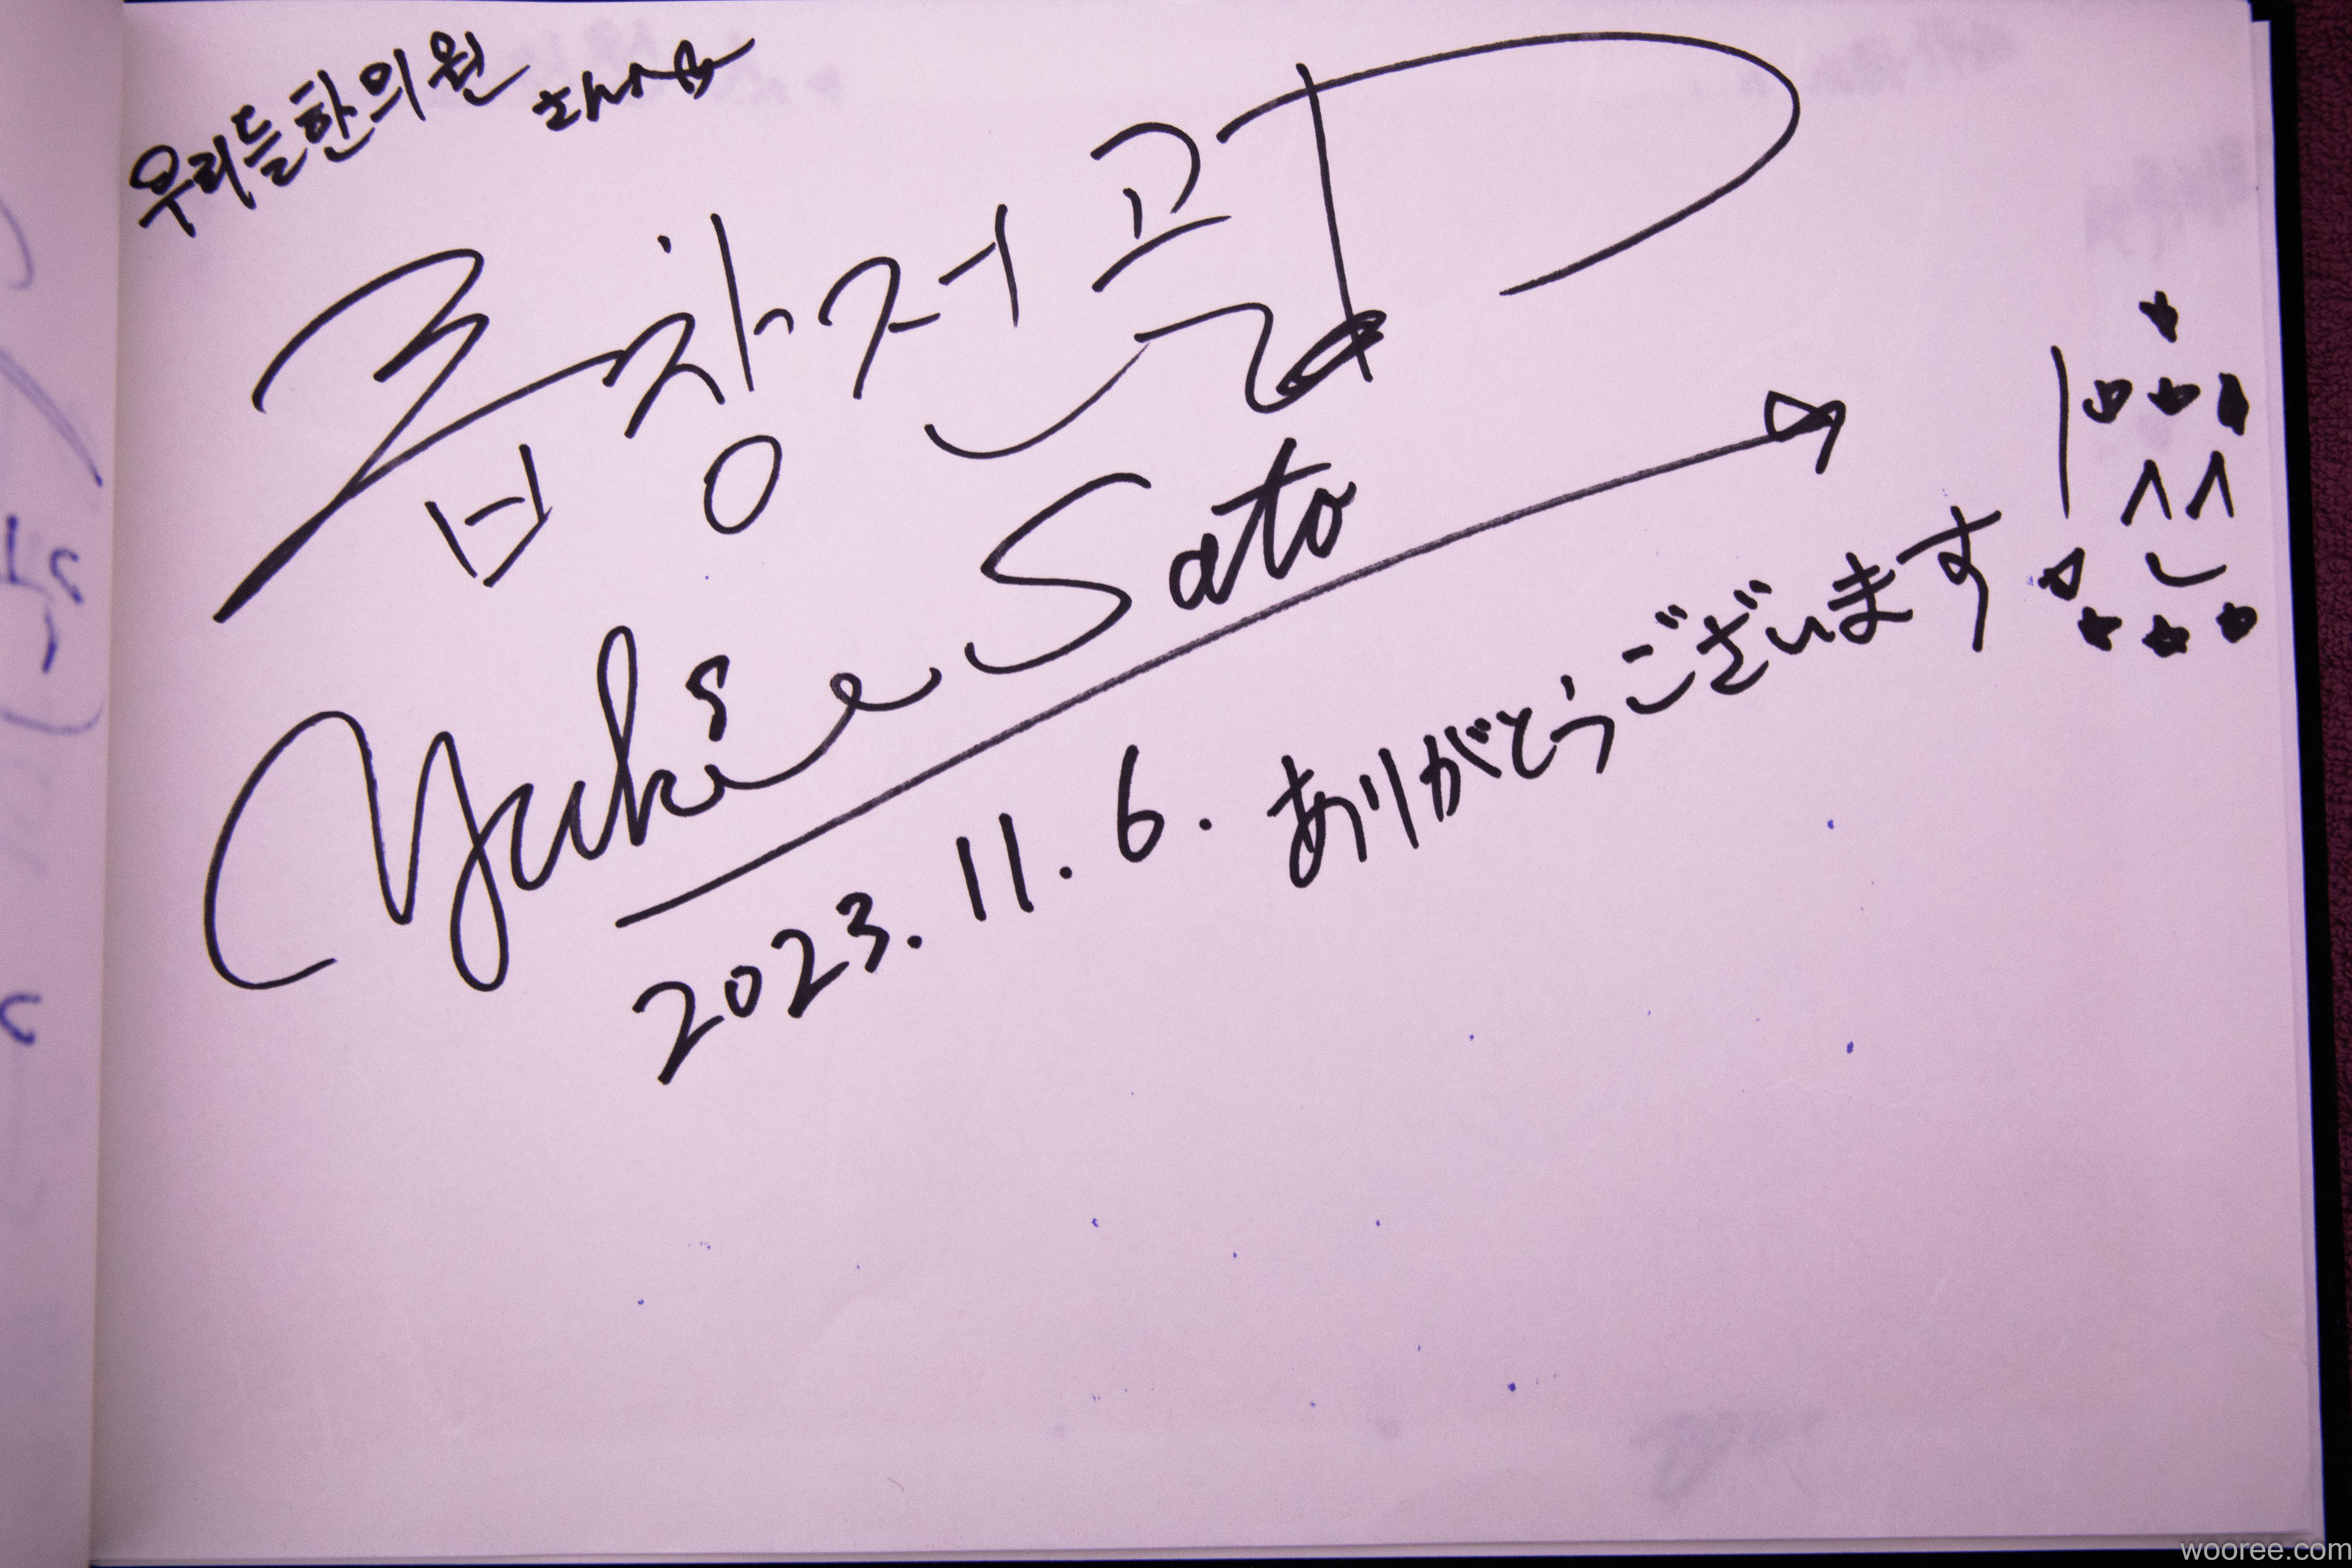 우리들한의원
곱창전골
Yukie Sato
2023. 11. 6. ありがとうございます
wooree.com